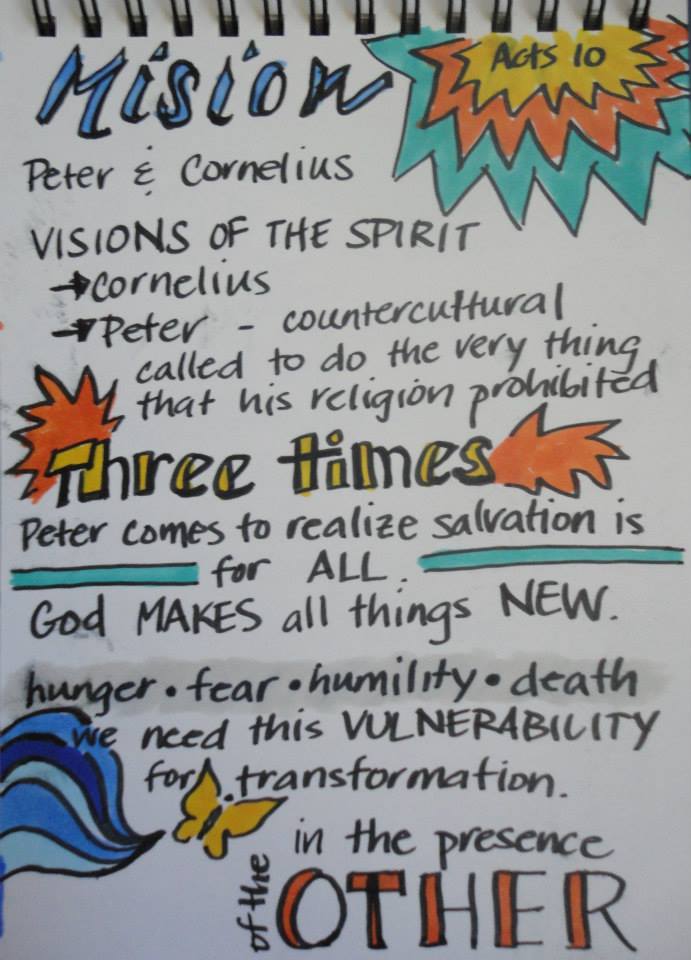 Mision
Acts 10
Peter & Cornelius
VISIONS OF THE SPIRIT
→cornelius
→Peter - countercultural
called to do the very thing
that his religion prohibited
Three times
Peter comes to realize salvation is
for ALL.
God MAKES all things NEW.
hunger • fear • humility • death
we need this VULNERABILITY
for transformation.
in the presence
of the OTHER